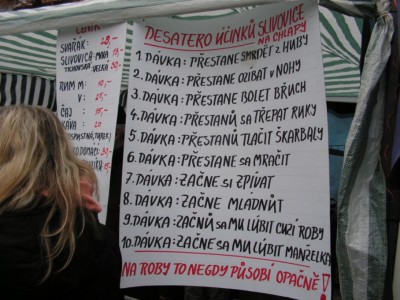 CENÍK
SVAŘÁK:
SLIVOVICA-MALÁ
TICHOVSKÁ-VELKÁ 30,-
RUM M
V :
ČAJ
KÁVA : 20
DESATERO ÚČINKŮ SLIVOVICE
NA CHLAPY
1. DÁVKA: PŘESTANE SMRDĚT Z HUBY
2. DÁVKA: PŘESTANE OZIBAT V NOHY
3. DÁVKA: PŘESTANE BOLET BŘUCH
4. DÁVKA: PŘESTANÚ SA TŘEPAT RUKY
5. DÁVKA: PŘESTANÚ TLAČIT ŠKARBALY
6. DÁVKA: PŘESTANE SA MRAČIT
7. DÁVKA: ZAČNE SI ZPÍVAT
8. DÁVKA: ZAČNE MLADNÚT
9. DÁVKA: ZAČNÚ SA MU LÚBIT CUZÍ ROBY
10. DÁVKA: ZAČNE SA MU LÚBIT MANŽELKA
NA ROBY TO NEGDY PŮSOBÍ OPAČNĚ!